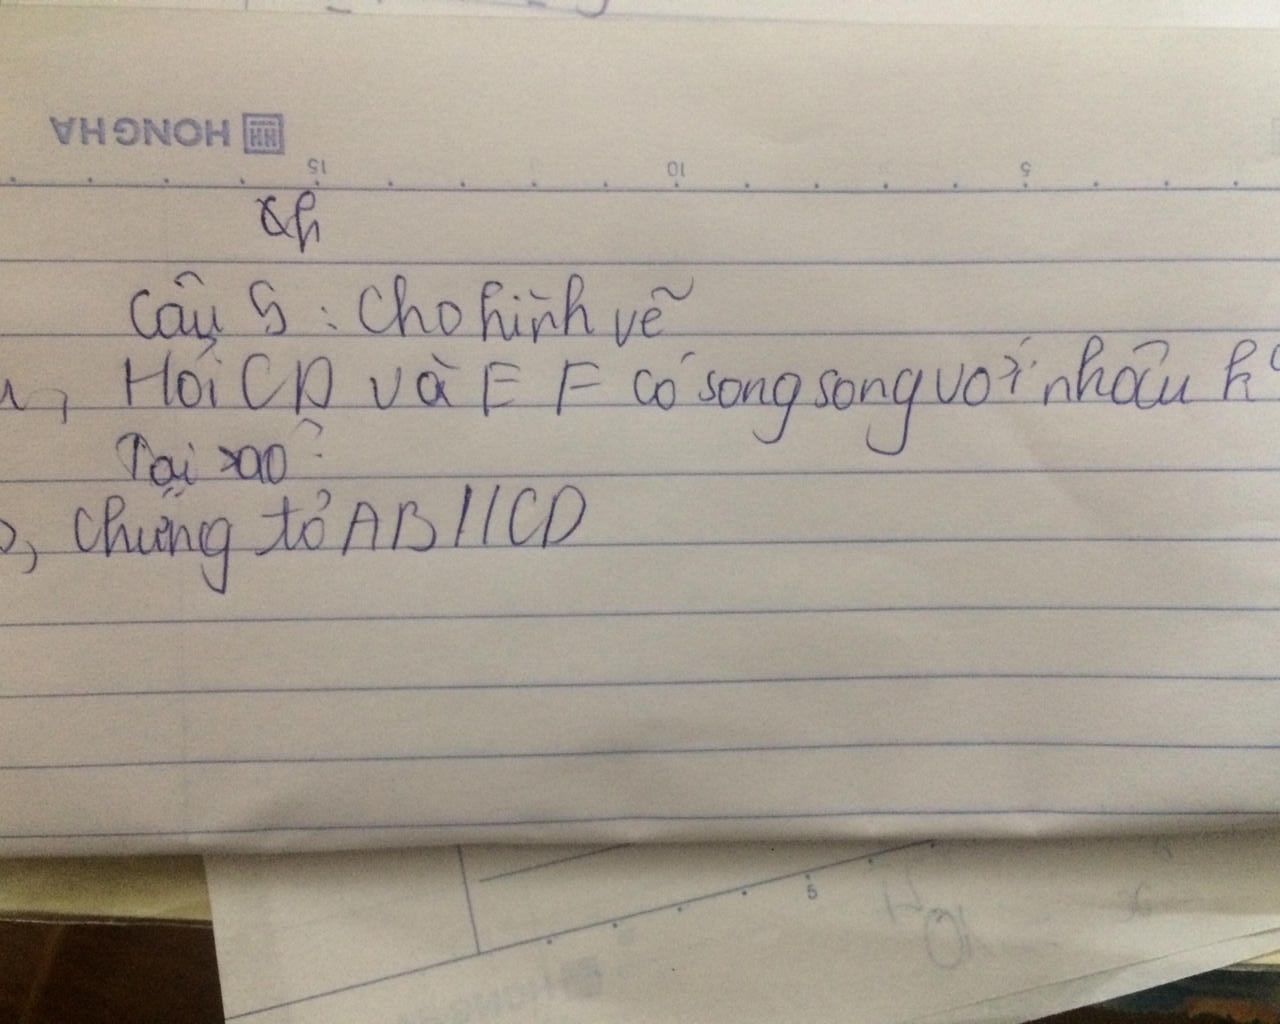 HONG HA
15 10 5
Câu 5 : Cho hình vẽ
a, Hỏi CD và EF có song song với nhau k⁰
Tại sao?
b, Chứng tỏ AB//CD
5